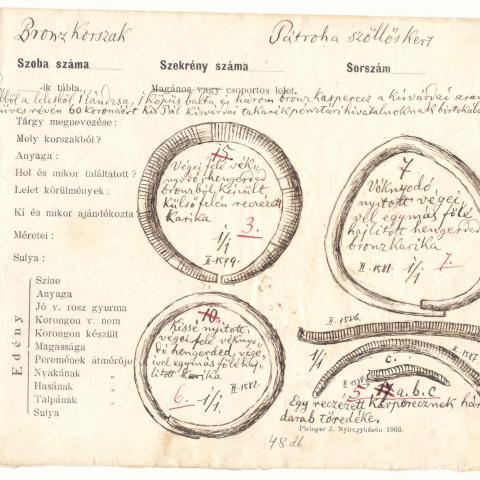 Bronz Korszak
Pátroha szőllőskert
Szoba száma
Szekrény száma
Sorszám
-ik tábla.
Magános vagy csoportos lelet.
ből a leletből 1 lándzsa, 1 köpüs balta és három bronz karperecz a kisvárdai
révén 60 koronáért Kis Pál kisvárdai takarékpénztári hivatalnoknak
Tárgy megnevezése:
Mely korszakból?
Anyaga:
Hol és mikor találtatott?
Lelet körülmények:
Ki és mikor ajándékozta?
Méretei:
Sulya:
Edény
Szine
Anyaga
Jó v. rosz gyurma
Korongon v. nem
Korongon készült
Magassága
Peremének átmérője
Nyakának "
Hasának "
Talpának "
Sulya
15
Végei felé véknyodó hengerded
bronzból készült
külső felén reczezett
karika
3.
1/1
II. 1579.
7
Véknyodó
nyitott végeivel
egymás fölé
hajlitott hengerded
bronz karika
1/1
II. 1581.
7.
10.
Kissé nyitott,
végei felé véknyodó
hengerded, végeivel
egymás fölé hajlitott
karika
6.
1/1.
II. 1582.
II. 1586.
1/1
c.
5
a. b. c
Egy reczezett karperecznek három
darab töredéke.
Piringer J. Nyiregyházán 1903.
48 db